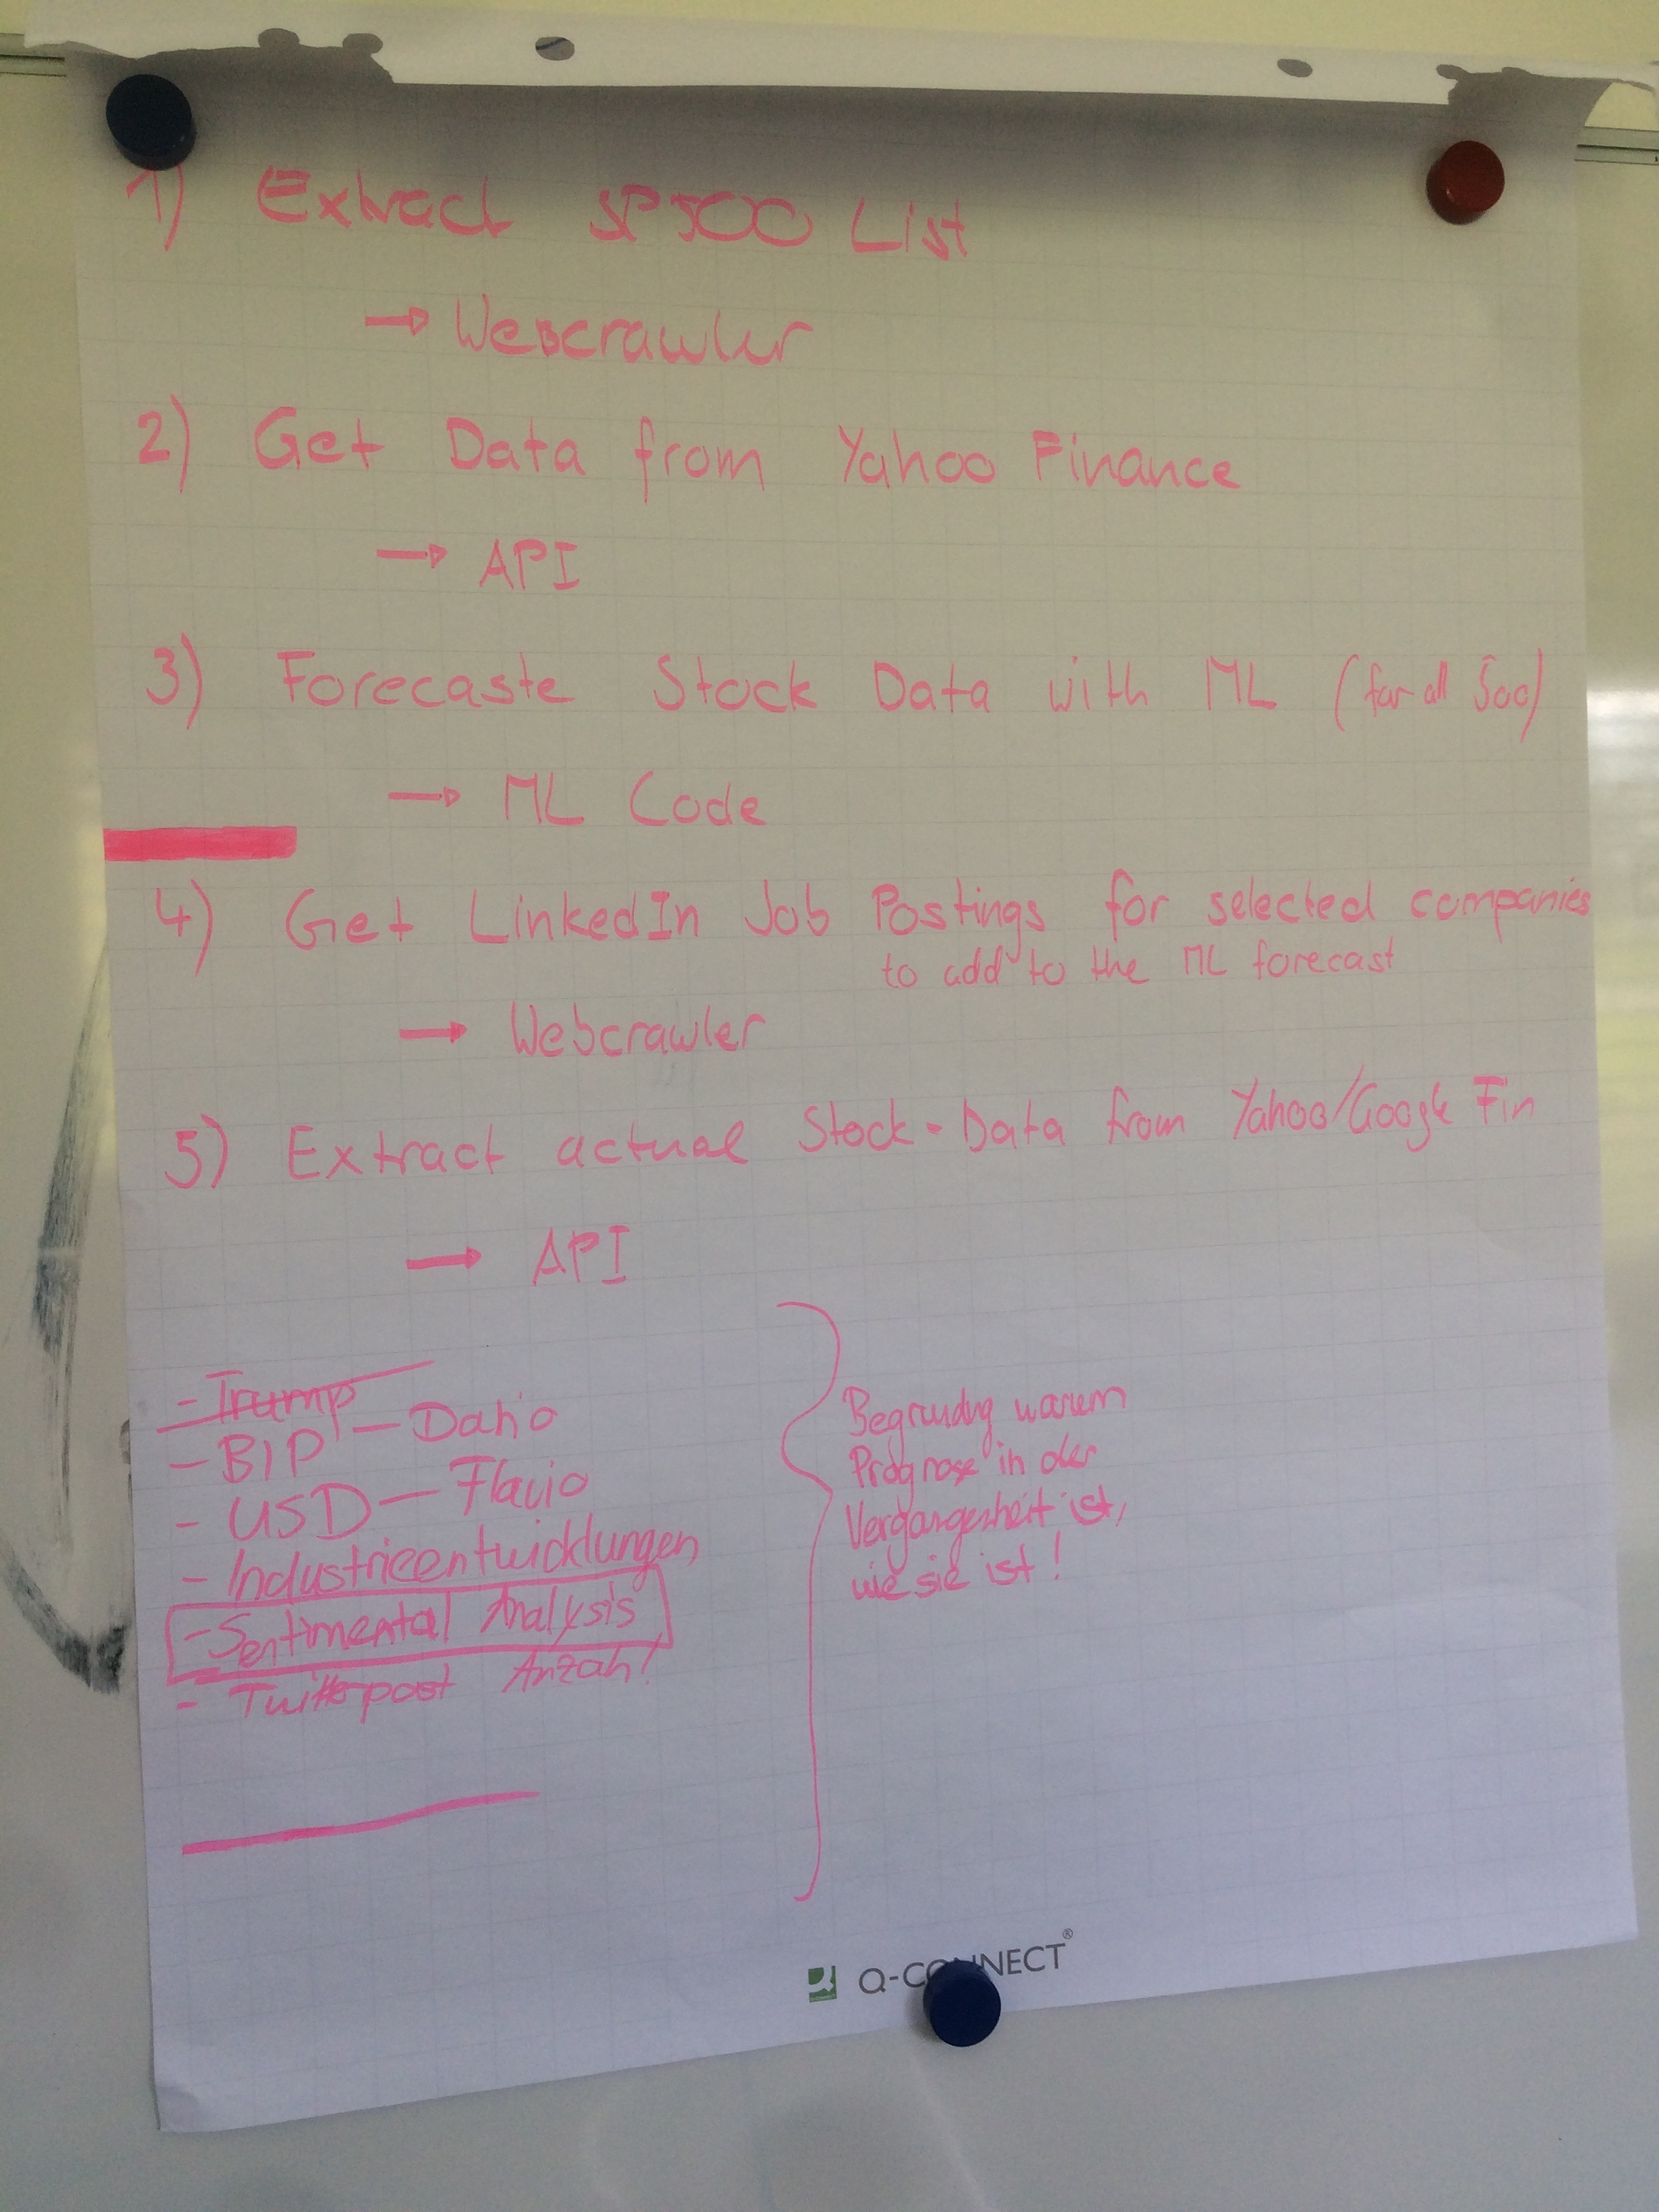 1) Extract SP500 List
→ Webcrawler
2) Get Data from Yahoo Finance
→ API
3) Forecaste Stock Data with ML (for all 500)
→ ML Code
4) Get LinkedIn Job Postings for selected companies
to add to the ML forecast
→ Webcrawler
5) Extract actual Stock-Data from Yahoo/Google Fin
→ API
- Trump
- BIP - Dario
- USD - Flavio
- Industrieentwicklungen
- Sentimental Analysis
- Twitterpost Anzahl
Begründg warum
Prognose in der
Vergangenheit ist,
wie sie ist!
Q-CONNECT®